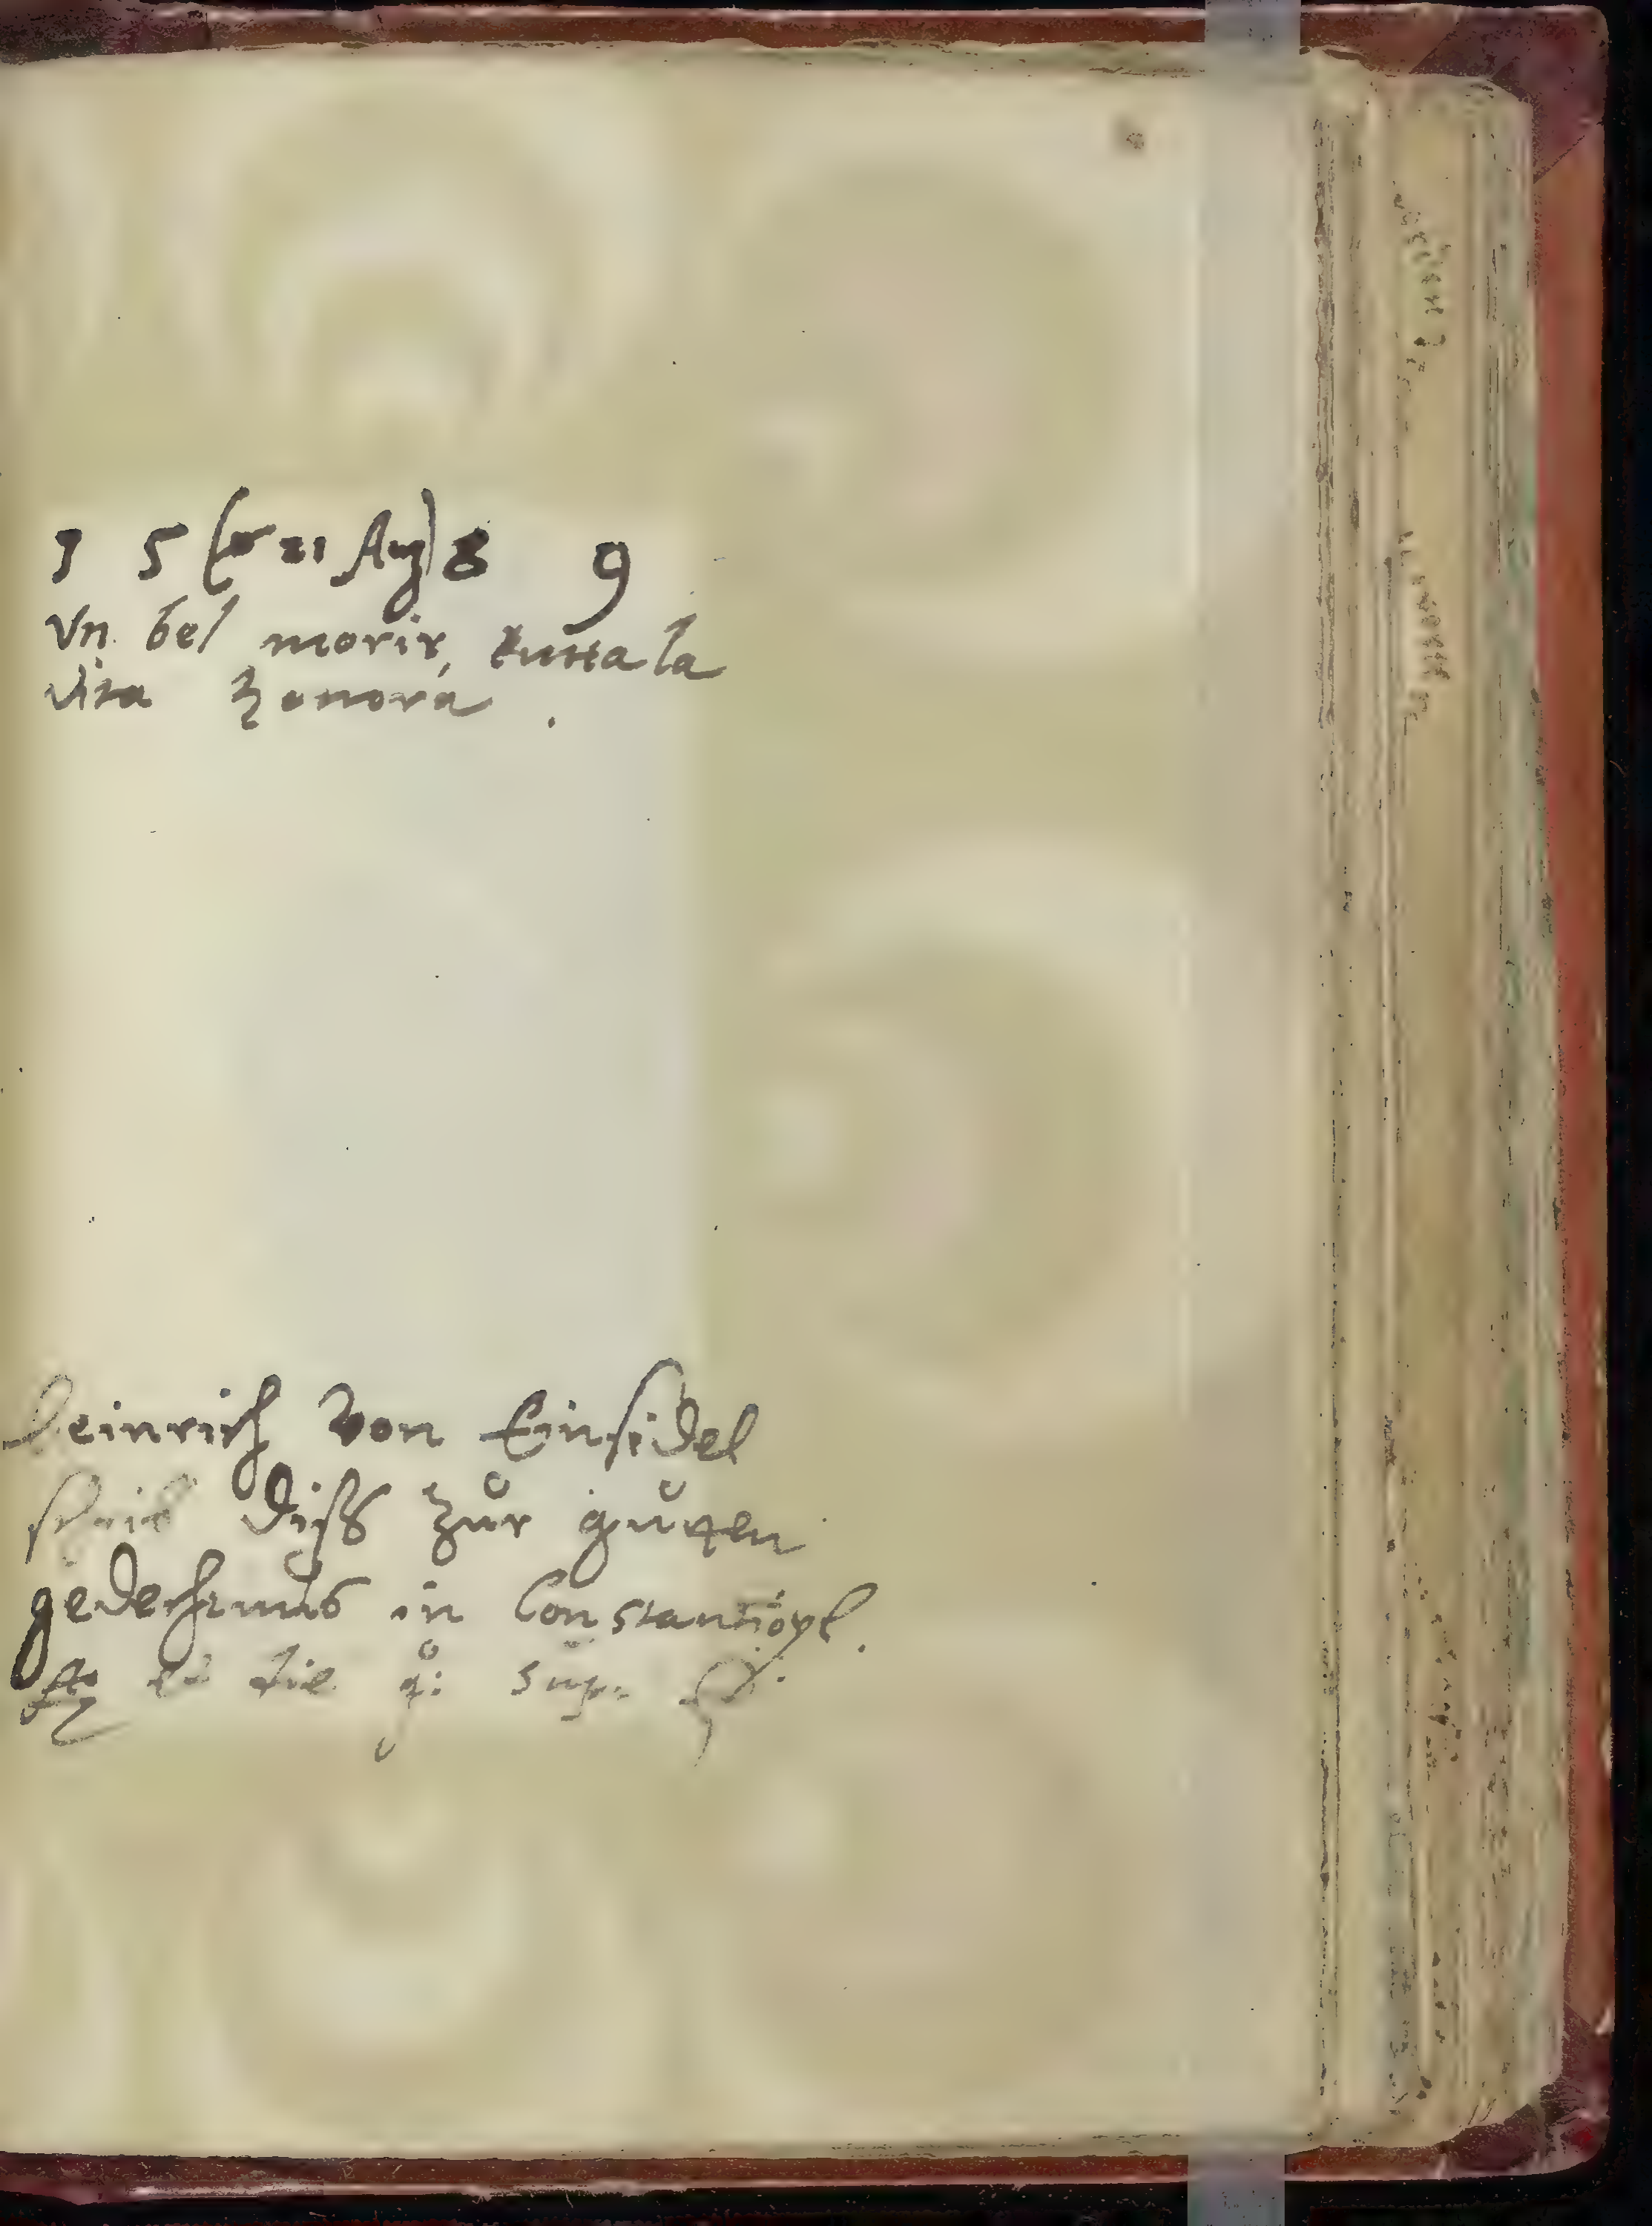 1 5 ( 21 Aug) 8 9
Vn bel morir, tutta la
vita honora.
Heinrich von Einsidel
schrib diß zur guten
gedechtnus in Constantiopl.
die supra